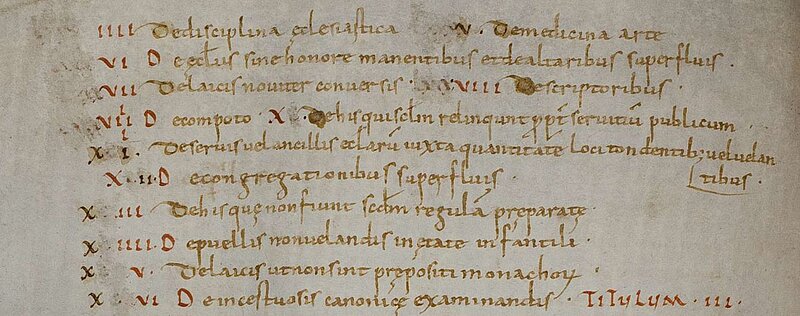 IIII De disciplina ęclesiastica V. De medicina arte
VI De ęccłis sine honore manentibus et de altaribus superfluis.
VII De laicis noviter conversis. VIII De scriptoribus.
VIIII De compoto X. De his qui scłm relinqunt ꝓpt̄ servitiū publicum
XI. De servis vel ancillis ęclarū iuxta quantitatē loci tondentib; vel velan
XII. De congregationibus superfluis. tibus.
XIII De his quę non fiunt scdm̄ regulā pręparatę
XIIII. De puellis non velandis in ętate infantili.
XV. De laicis ut non sint prepositi monachoꝝ
XVI De incestuosis canonicę examinandis. TITULUM. III.